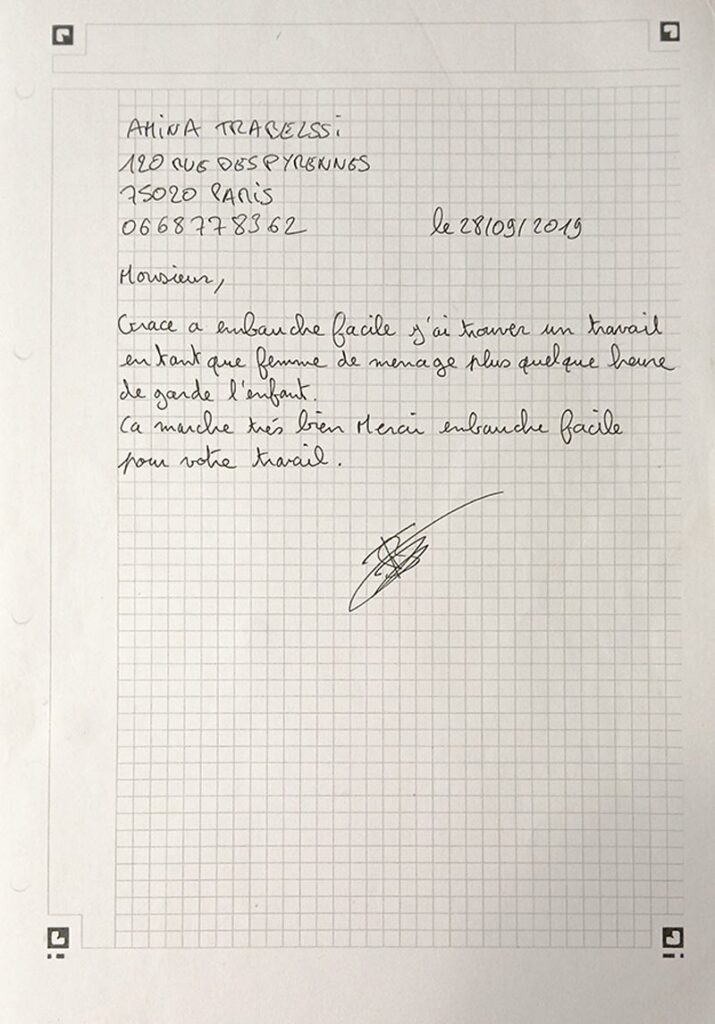 AMINA TRABELSSI
120 RUE DES PYRENNES
75020 PARIS
0668778362 le 28/09/2019
Monsieur,
Grace a embauche facile j'ai trouver un travail
en tant que femme de menage plus quelque heure
de garde l'enfant.
Ca marche trés bien Merci embauche facile
pour votre travail.